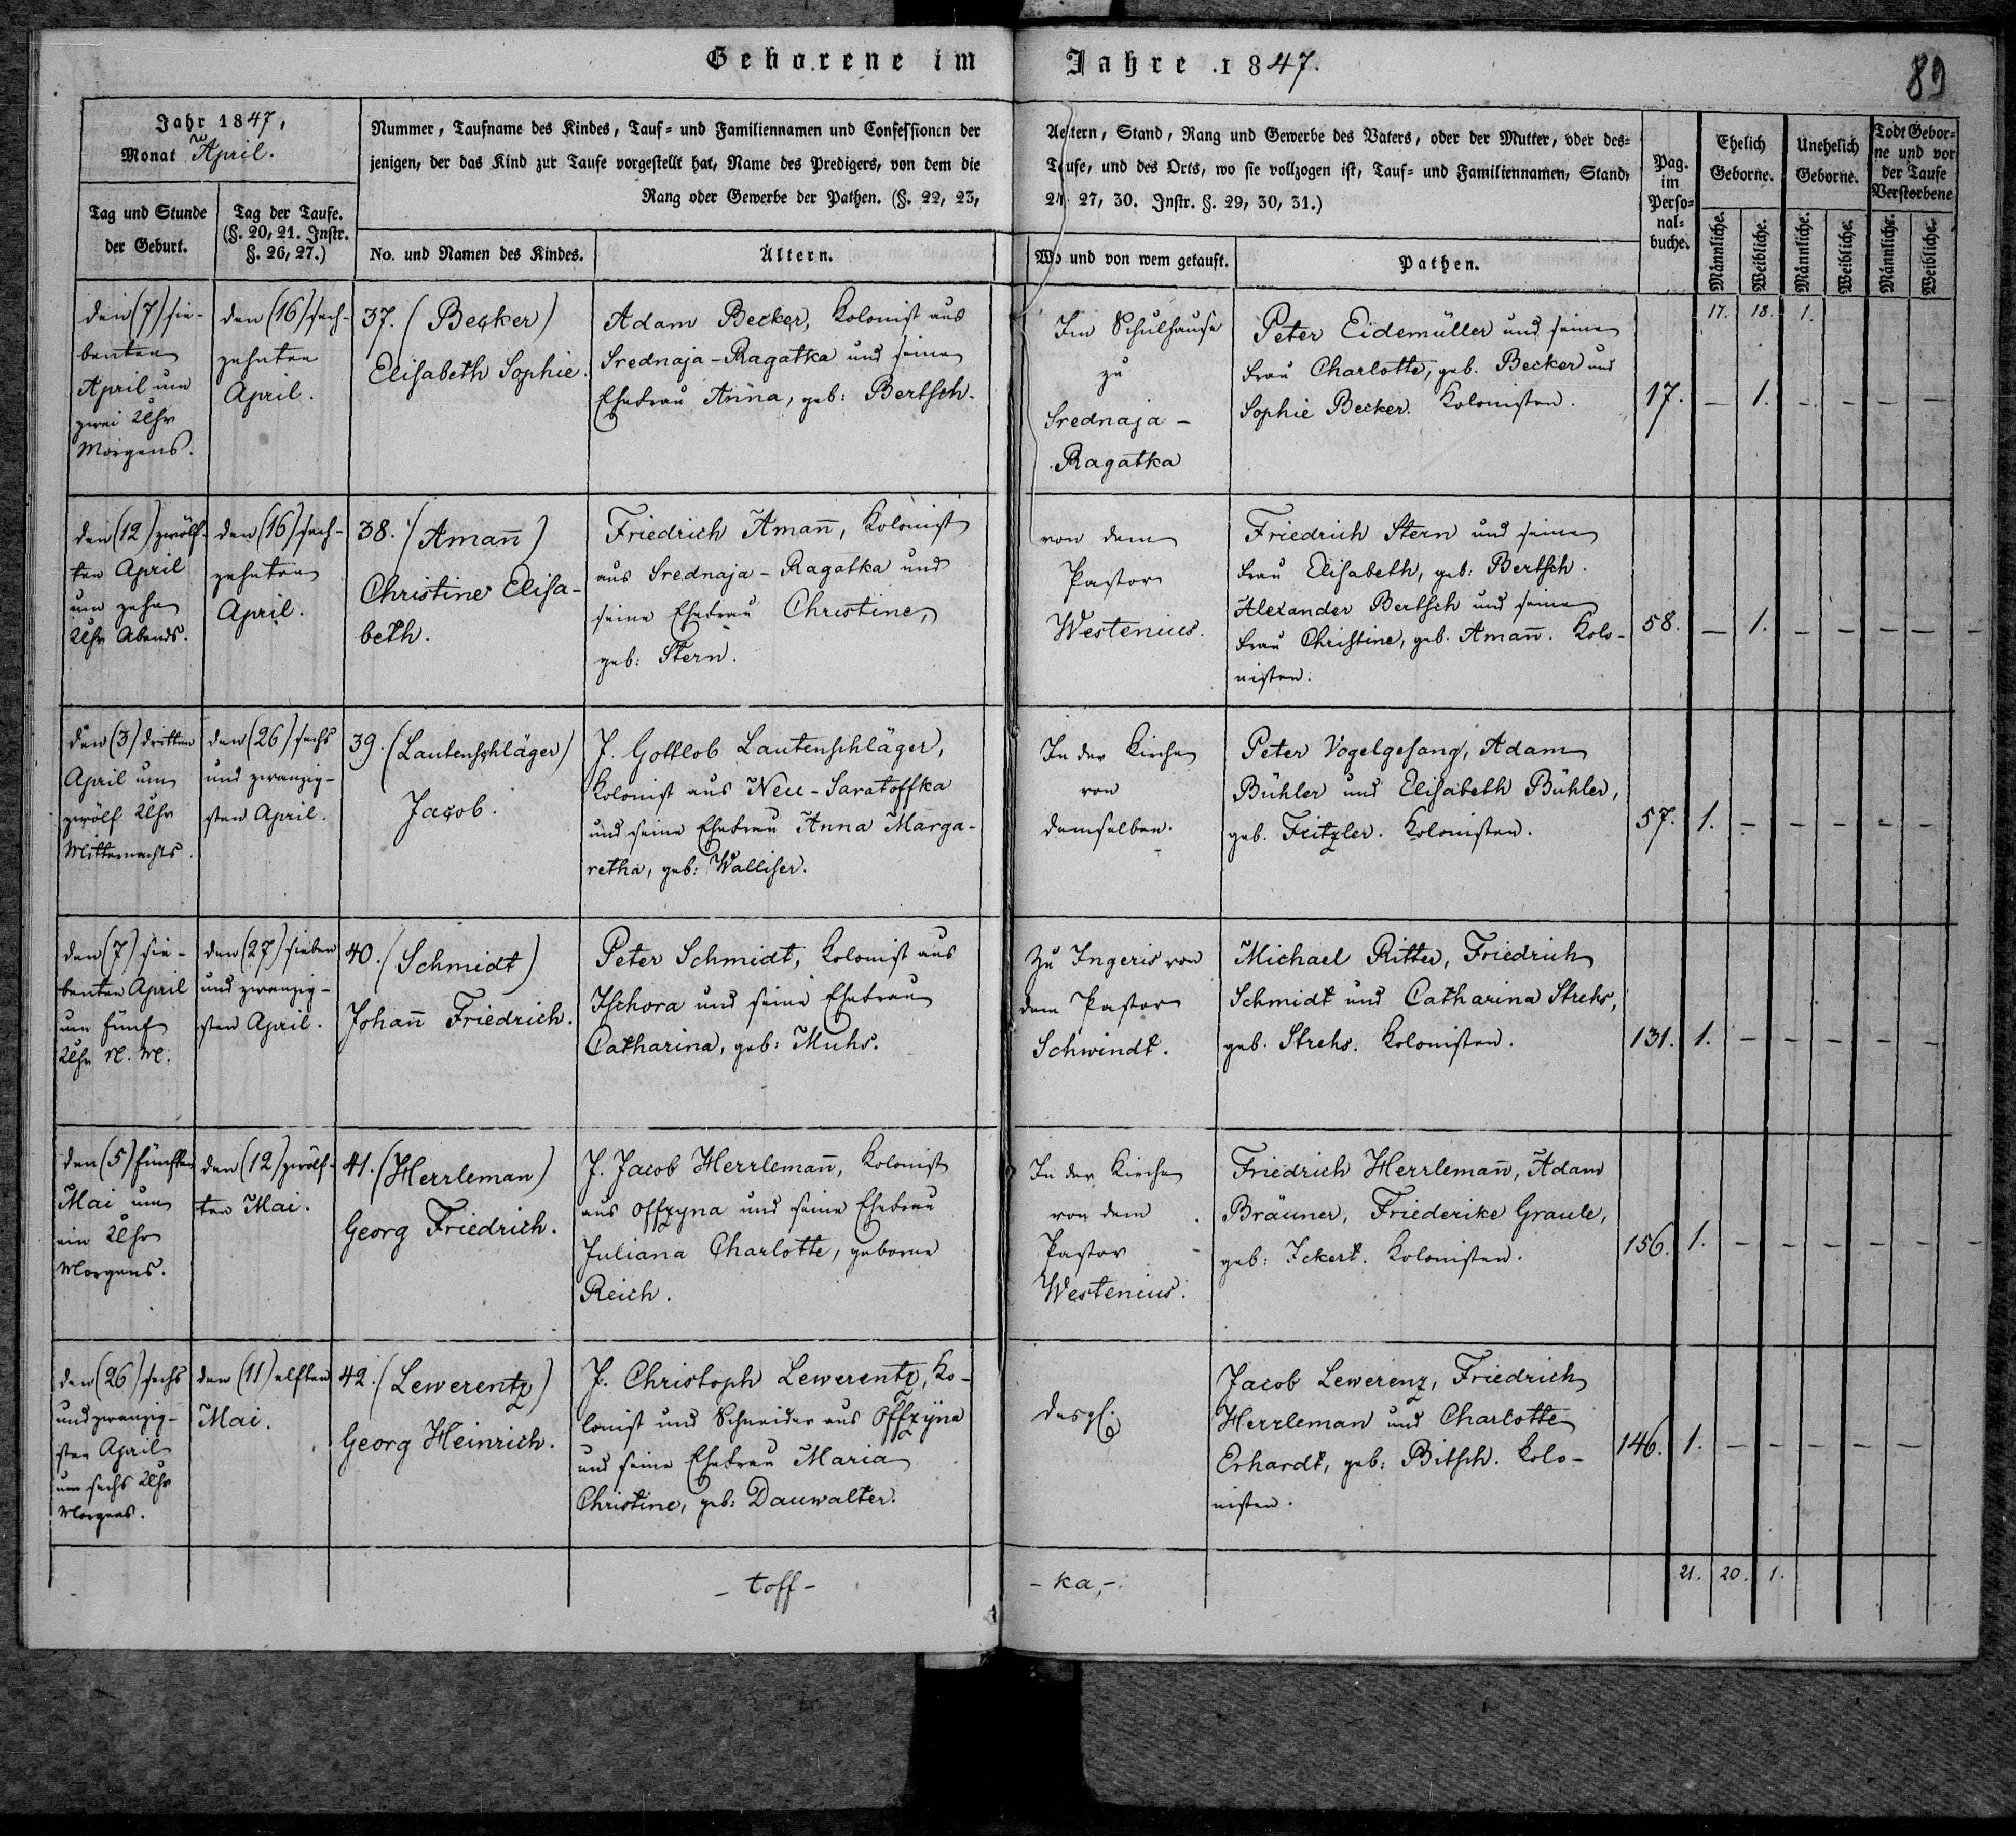 Geborene im Jahre 1847.
89
Jahr 1847,
Monat April.
Nummer, Taufname des Kindes, Tauf- und Familiennamen und Confessionen der
jenigen, der das Kind zur Taufe vorgestellt hat, Name des Predigers, von dem die
Rang oder Gewerbe der Pathen. (§. 22, 23,
Tag und Stunde
der Geburt.
Tag der Taufe.
(§. 20, 21. Instr.
§. 26, 27.)
No. und Namen des Kindes.
Ältern.
Aeltern, Stand, Rang und Gewerbe des Vaters, oder der Mutter, oder des-
Taufe, und des Orts, wo sie vollzogen ist, Tauf- und Familiennamen, Stand,
24. 27, 30. Instr. §. 29, 30, 31.)
Wo und von wem getauft.
Pathen.
Pag.
im
Perso-
nal-
buche.
Ehelich
Geborne.
Unehelich
Geborne.
Todt Gebor-
ne und vor
der Taufe
Verstorbene
Männliche.
Weibliche.
Männliche.
Weibliche.
Männliche.
Weibliche.
17. 18. 1.
den (7) sie-
benten
April um
zwei Uhr
Morgens.
den (16) sech-
zehnten
April.
37. (Becker)
Elisabeth Sophie.
Adam Becker, Kolonist aus
Srednaja-Ragatka und seine
Ehefrau Anna, geb: Bertsch.
Im Schulhause
zu
Srednaja-
Ragatka
Peter Eidemüller und seine
Frau Charlotte, geb. Becker und
Sophie Becker. Kolonisten.
17. — 1. — — — —
den (12) zwölf-
ten April
um zehn
Uhr Abends.
den (16) sech-
zehnten
April.
38. (Aman̄)
Christine Elisa-
beth.
Friedrich Aman̄, Kolonist
aus Srednaja-Ragatka und
seine Ehefrau Christine,
geb: Stern.
von dem
Pastor
Westenius.
Friedrich Stern und seine
Frau Elisabeth, geb: Bertsch.
Alexander Bertsch und seine
Frau Christine, geb. Aman̄. Kolo-
nisten.
58. — 1. — — — —
den (3) dritten
April um
zwölf Uhr
Mitternachts.
den (26) sechs
und zwanzig-
sten April.
39. (Lautenschläger)
Jacob.
J. Gottlob Lautenschläger,
Kolonist aus Neu-Saratoffka
und seine Ehefrau Anna Marga-
retha, geb: Walliser.
In der Kirche
von
demselben.
Peter Vogelgesang, Adam
Bühler und Elisabeth Bühler,
geb. Fritzler. Kolonisten.
57. 1. — — — — —
den (7) sie-
benten April
um fünf
Uhr N. M.
den (27) sieben
und zwanzig-
sten April.
40. (Schmidt)
Johan̄ Friedrich.
Peter Schmidt, Kolonist aus
Ischora und seine Ehefrau
Catharina, geb: Muhs.
Zu Ingeris von
dem Pastor
Schwindt.
Michael Ritter, Friedrich
Schmidt und Catharina Strehs,
geb. Strehs. Kolonisten.
131. 1. — — — — —
den (5) fünften
Mai um
ein Uhr
Morgens.
den (12) zwölf-
ten Mai.
41. (Herrleman)
Georg Friedrich.
J. Jacob Herrleman̄, Kolonist
aus Offzyna und seine Ehefrau
Juliana Charlotte, geborne
Reich.
In der Kirche
von dem
Pastor
Westenius.
Friedrich Herrleman̄, Adam
Bräuner, Friederike Graule,
geb: Ickert. Kolonisten.
156. 1. — — — — —
den (26) sechs
und zwanzig-
sten April
um sechs Uhr
Morgens.
den (11) elften
Mai.
42. (Lewerentz)
Georg Heinrich.
J. Christoph Lewerentz, Ko-
lonist und Schneider aus Offzyna
und seine Ehefrau Maria
Christine, geb: Dauwalter.
desgl.
Jacob Lewerenz, Friedrich
Herrleman und Charlotte
Erhardt, geb: Bitsch. Kolo-
nisten.
146. 1. — — — — —
- toff -
- ka, -
21. 20. 1.